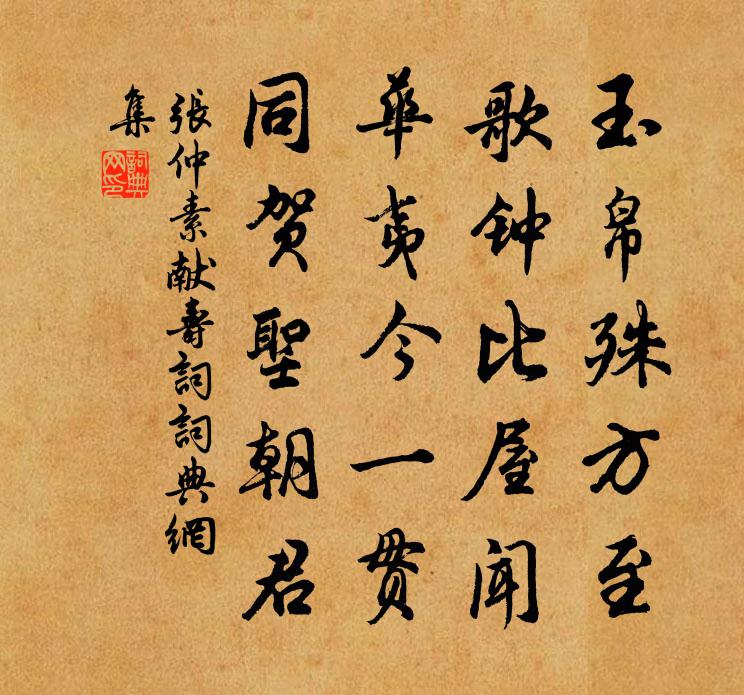 玉帛殊方至
歌钟比屋闻
華夷今一贯
同贺聖朝君
張仲素献壽詞詞典網
集
詞典
网印